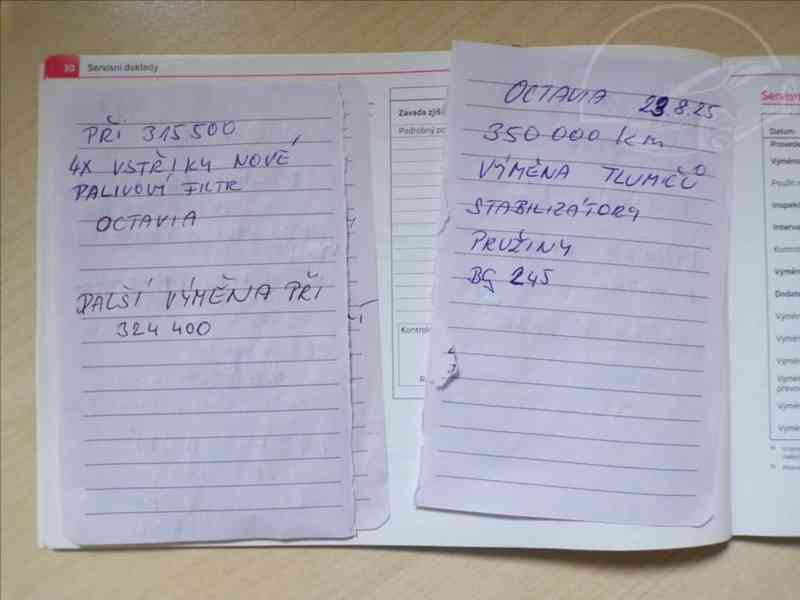 30 Servisní doklady
PŘI 315 500
4X VSTŘIKY NOVÉ
PALIVOVÍ FILTR
OCTAVIA
DALŠÍ VÝMĚNA PŘI
324 400
Závada zjiš
Podrobný po
Kontrol
OCTAVIA 23.8.25
350 000 km
VÝMĚNA TLUMIČŮ
STABILIZÁTORY
PRUŽINY
BG 245
Servisní
Datum:
Provede
Výměno
Použit
Inspek
Interva
Kontrol
Výměn
Dodate
Výměn
Výměn
Výměn
Výměn
Výměn
převo
Výměn